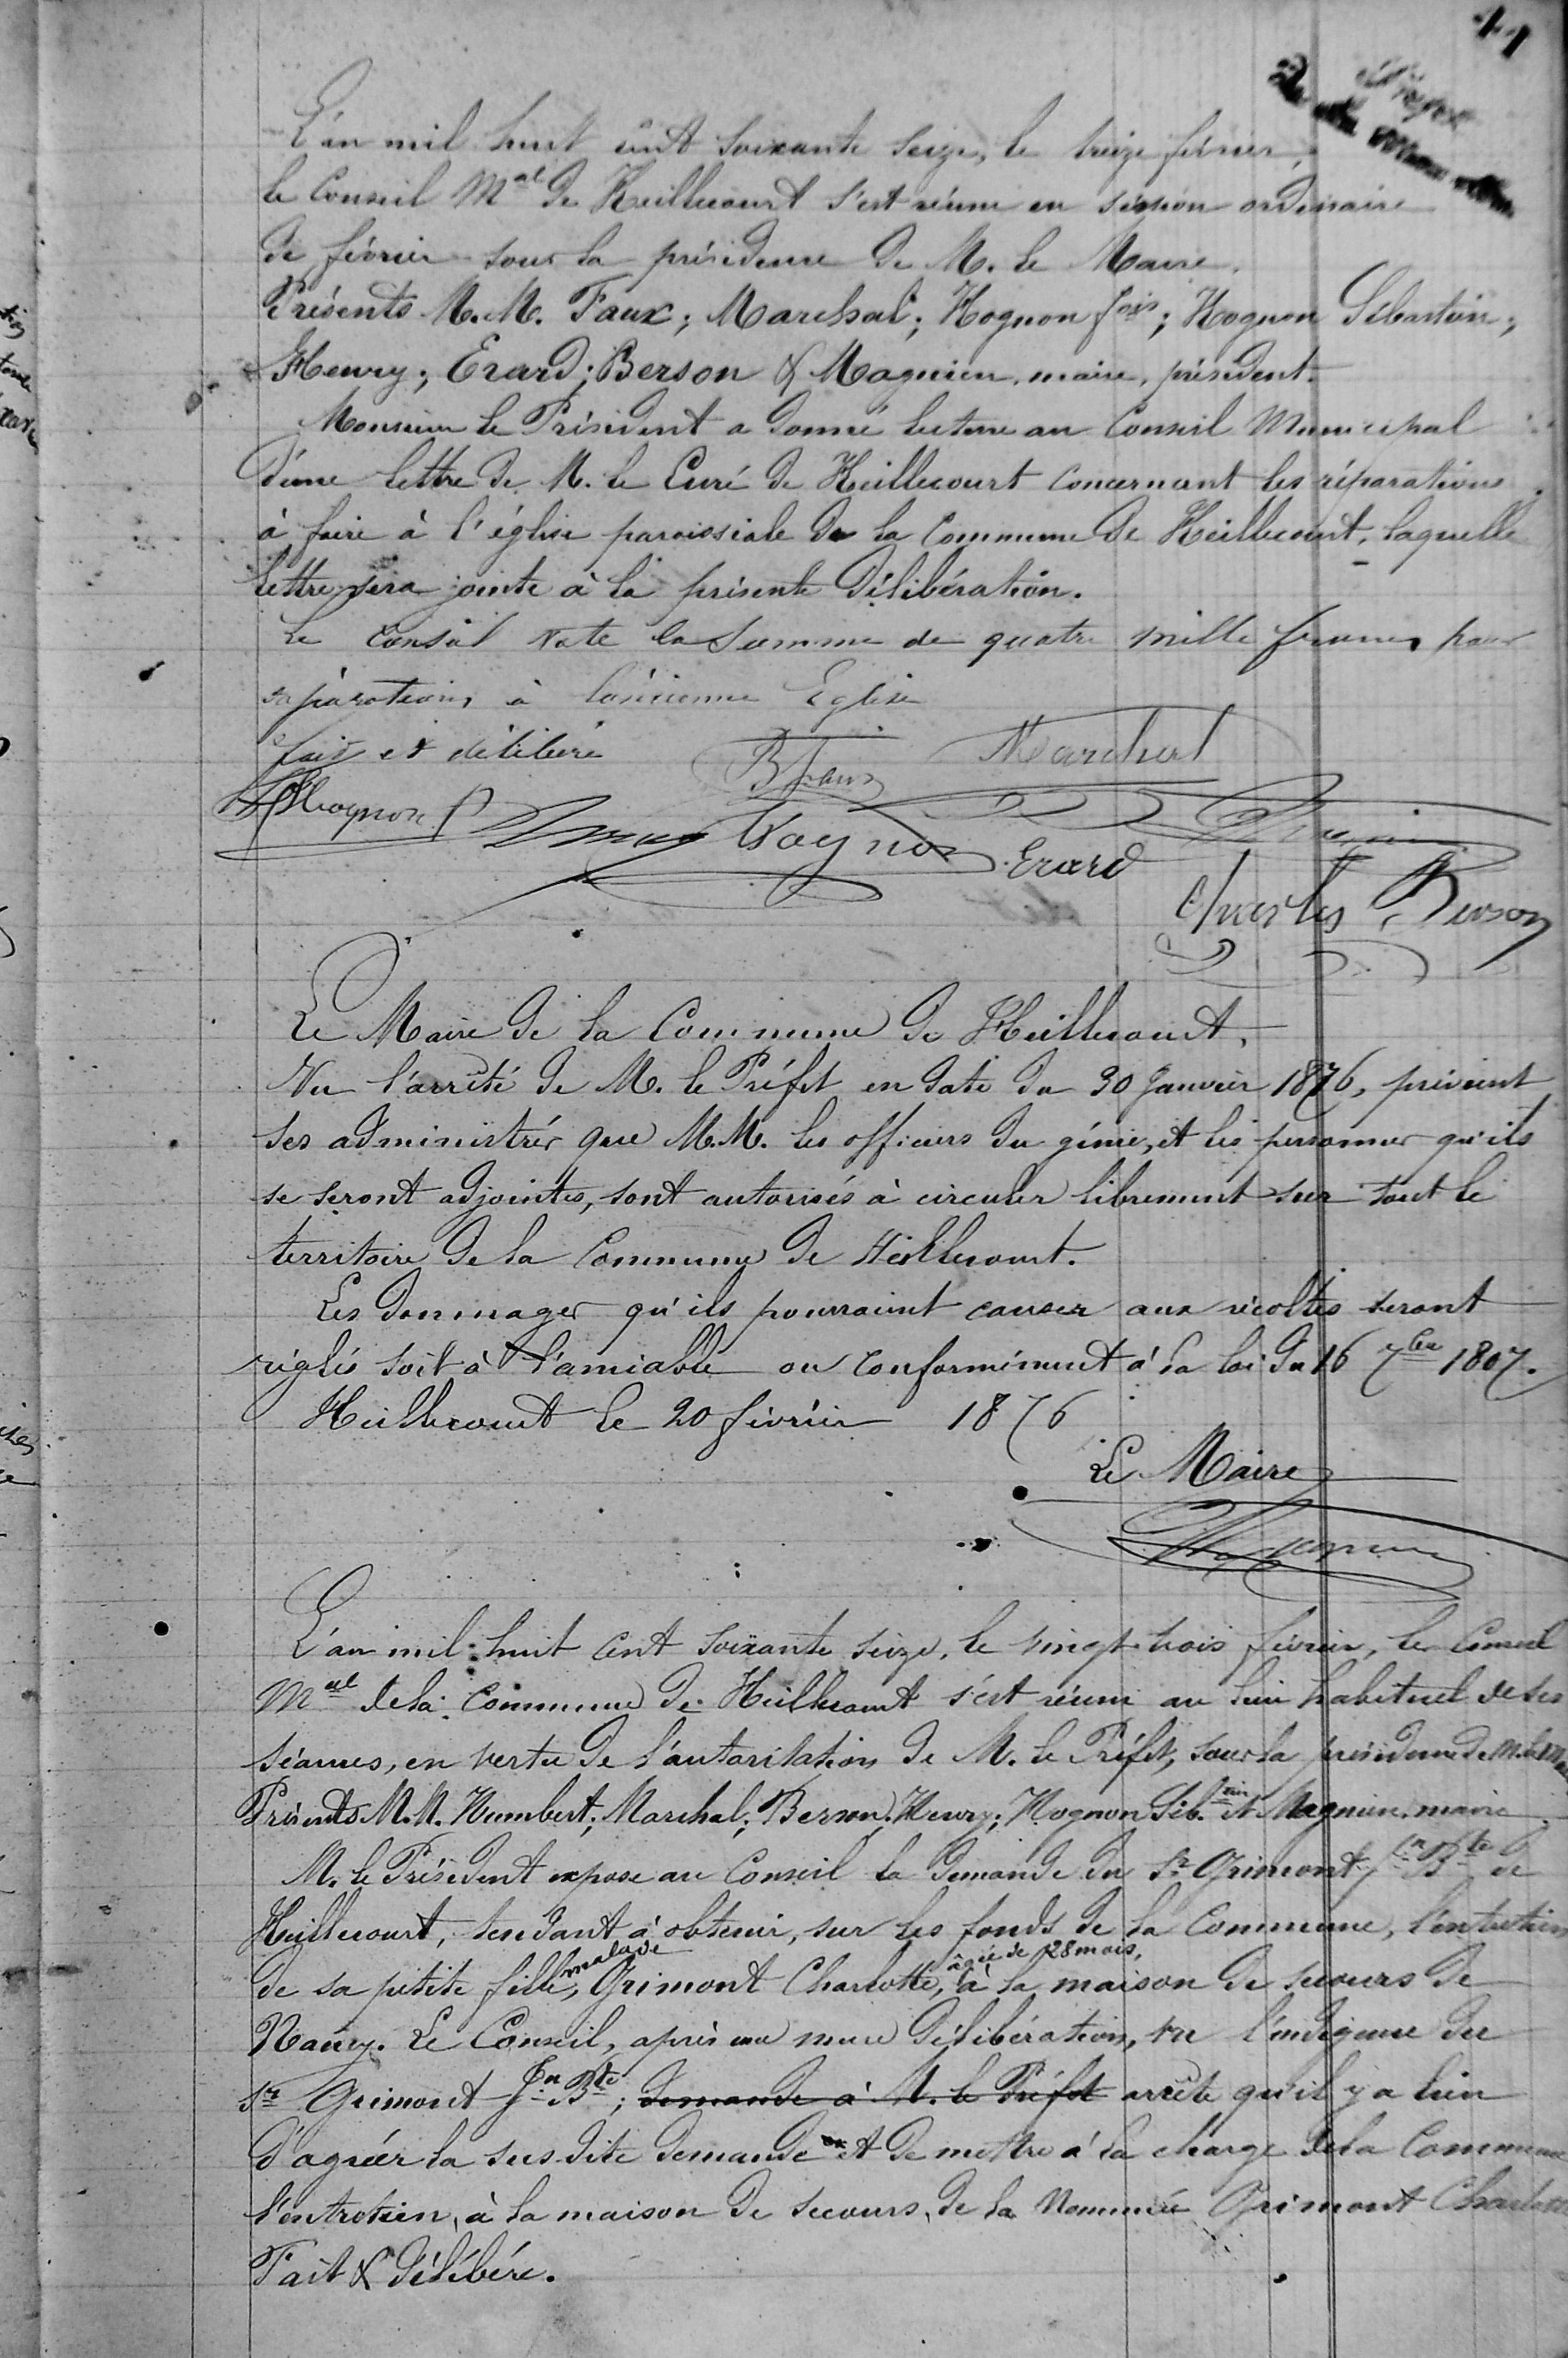 41
L'an mil huit cent soixante seize, le treize février,
le Conseil Mal de Heillecourt s'est réuni en session ordinaire
de février sous la présidence de M. le Maire.
Présents M.M. Faux; Marchal; Hognon fois; Hognon Sébastien;
Henry; Erard; Berson & Magnien, maire, président.
Monsieur le Président a donné lecture au Conseil Municipal
d'une lettre de M. le Curé de Heillecourt concernant les réparations
à faire à l'église paroissiale de la Commune de Heillecourt, laquelle
lettre sera jointe à la présente délibération.
Le Conseil vote la Somme de quatre mille francs pour
réparations à l'ancienne Eglise
fait et délibéré
Marchal
Hognon
Hognon
Erard
Charles Berson
Le Maire de la Commune de Heillecourt,
Vu l'arrêté de M. le Préfet en date du 30 Janvier 1876, prévient
ses administrés que M.M. les officiers du génie, et les personnes qu'ils
se seront adjointes, sont autorisés à circuler librement sur tout le
territoire de la Commune de Heillecourt.
Les dommages qu'ils pourraient causer aux récoltes seront
réglés soit à l'amiable ou conformément à la loi du 16 7bre 1807.
Heillecourt le 20 février 1876
Le Maire
L'an mil huit cent soixante seize, le vingt-trois février, le Conseil
Mal de la Commune de Heillecourt s'est réuni au lieu habituel de ses
séances, en vertu de l'autorisation de M. le Préfet, sous la présidence de M. le
Présents M.M. Humbert; Marchal; Berson; Henry; Hognon Séb.tien et Magnien, maire
M. le Président expose au Conseil la demande du Sr Grimont Jn Bte de
Heillecourt, tendant à obtenir, sur les fonds de la Commune, l'entretien
de sa petite fille, malade Grimont Charlotte, âgée de 28 mois, à la maison de secours de
Nancy. Le Conseil, après une mure délibération, vu l'indigence du
Sr Grimont Jn Bte; demande à M. le Préfet arrête qu'il y a lieu
d'agréer la susdite demande et de mettre à la charge de la Commune
l'entretien, à la maison de secours, de la Nommée Grimont Charlotte
Fait & délibéré.